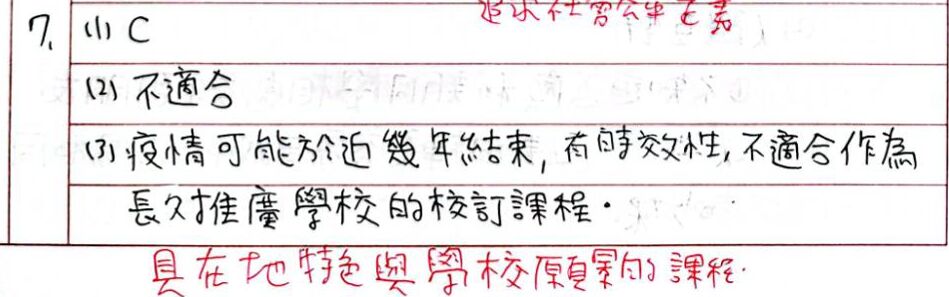 追求社會公平正義
7. (1) C
(2) 不適合
(3) 疫情可能於近幾年結束, 有時效性, 不適合作為
長久推廣學校的校訂課程。
具在地特色與學校願景的課程.